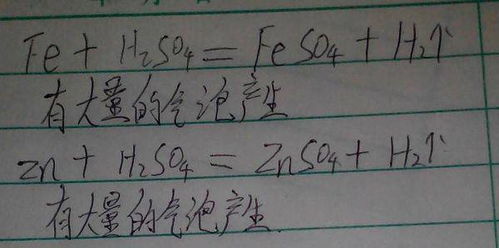 Fe + H₂SO₄ = FeSO₄ + H₂↑
有大量的气泡产生
Zn + H₂SO₄ = ZnSO₄ + H₂↑
有大量的气泡产生.